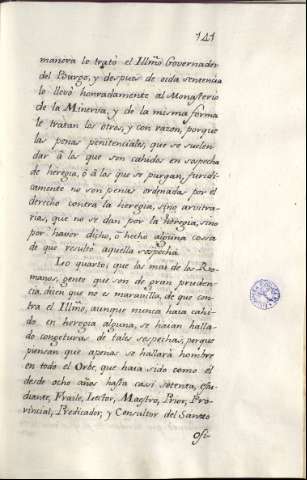 141
manera lo trató el Illmo Governador
del Burgo, y despues de oida sentencia
lo llevó honradamente al Monasterio
de la Minerva, y de la misma forma
le tratan los otros, y con razon, porque
las penas penitenciales, que se suelen
dar à los que son cahidos en sospecha
de heregia, ò à los que se purgan, juridi-
camente no son penas ordenadas por el
derecho contra la heregia, sino arvitra-
rias, que no se dan por la heregia, sino
por haver dicho, ò hecho alguna cossa
de que resultò aquella sospecha.
Lo quarto, que los mas de los Ro-
manos, gente que son de gran pruden-
cia, dicen que no es maravilla, de que con-
tra el Illmo, aunque nunca haia cahi-
do en heregia alguna, se haian halla-
do congeturas de tales sospechas, porque
piensan que apenas se hallará hombre
en todo el Orbe, que haia sido como él
desde ocho años hasta casi setenta, estu-
diante, Fraile, Lector, Maestro, Prior, Pro-
vincial, Predicador, y Consultor del Santo
Ofi-